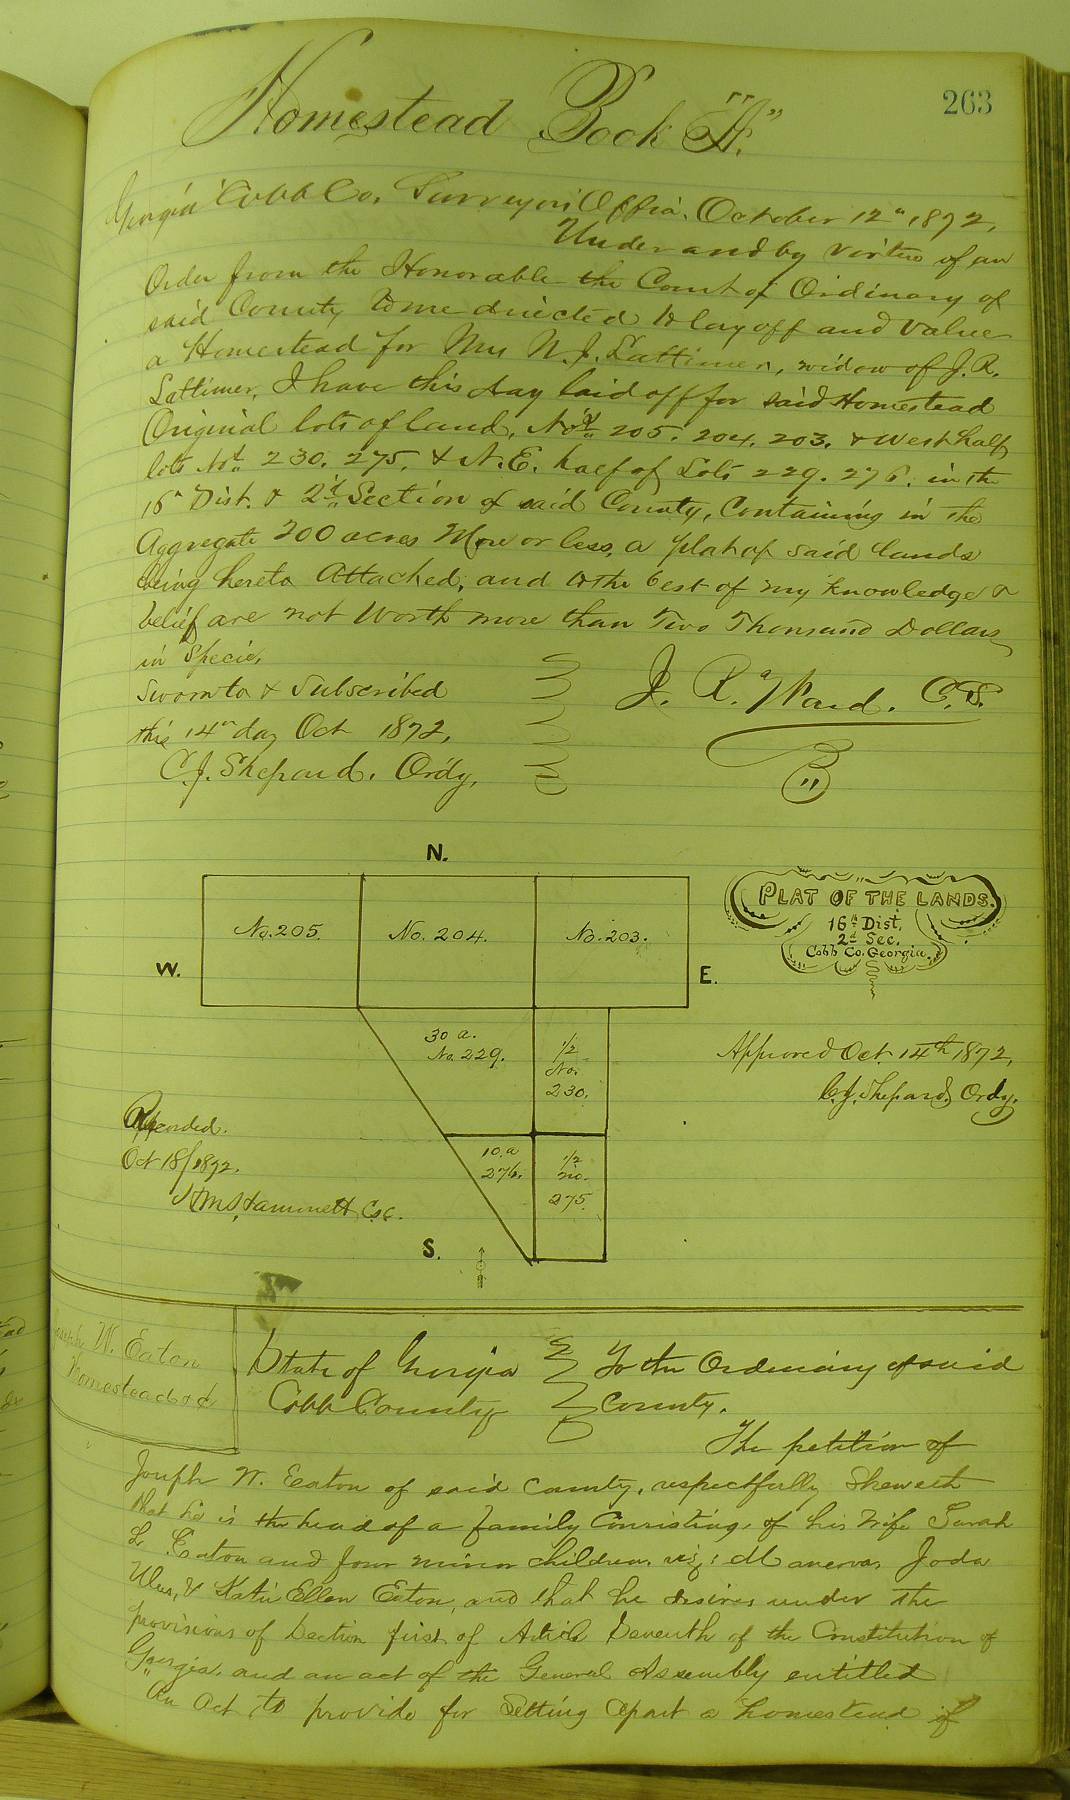 263
Homestead Book "A."
Georgia Cobb Co. Surveyors Office. October 12" 1872.
Under and by virtue of an
Order from the Honorable the Court of Ordinary of
said County to me directed to lay off and value
a Homestead for Mrs N. J. Lattimer, widow of J. R.
Lattimer, I have this day laid off for said Homestead
Original lots of land, Nos. 205. 204. 203. & West half
lots Nos. 230. 275. & N. E. half of Lots 229. 276. in the
16" Dist. & 2d Section of said County, Containing in the
Aggregate 200 acres More or less, a plat of said lands
being hereto Attached, and to the best of my knowledge &
belief are not Worth more than Two Thousand Dollars
in Specie.
Sworn to & Subscribed
this 14th day Oct 1872,
C. J. Shepard. Ordy,
J. R. Ward. C.S.
N.
No. 205.
No. 204.
No. 203.
W.
E.
PLAT OF THE LANDS.
16th Dist.
2d Sec.
Cobb Co. Georgia.
30 a.
No. 229.
1/2
No.
230.
10. a
276.
1/2
no.
275.
S.
Approved Oct. 14th 1872,
C. J. Shepard, Ordy.
Recorded.
Oct 18/1872.
Hammett C.S.C.
Joseph W. Eaton
Homestead &c
State of Georgia To the Ordinary of said
Cobb County County.
The petition of
Joseph W. Eaton of said County, respectfully Sheweth
that he is the head of a family Consisting, of his Wife Sarah
L Eaton and four minor children viz: Joda
& Katie Ellen Eaton, and that he desires under the
provisions of Section first of Article Seventh of the Constitution of
Georgia. and an act of the General Assembly entitled
An Act to provide for Setting Apart a homestead of